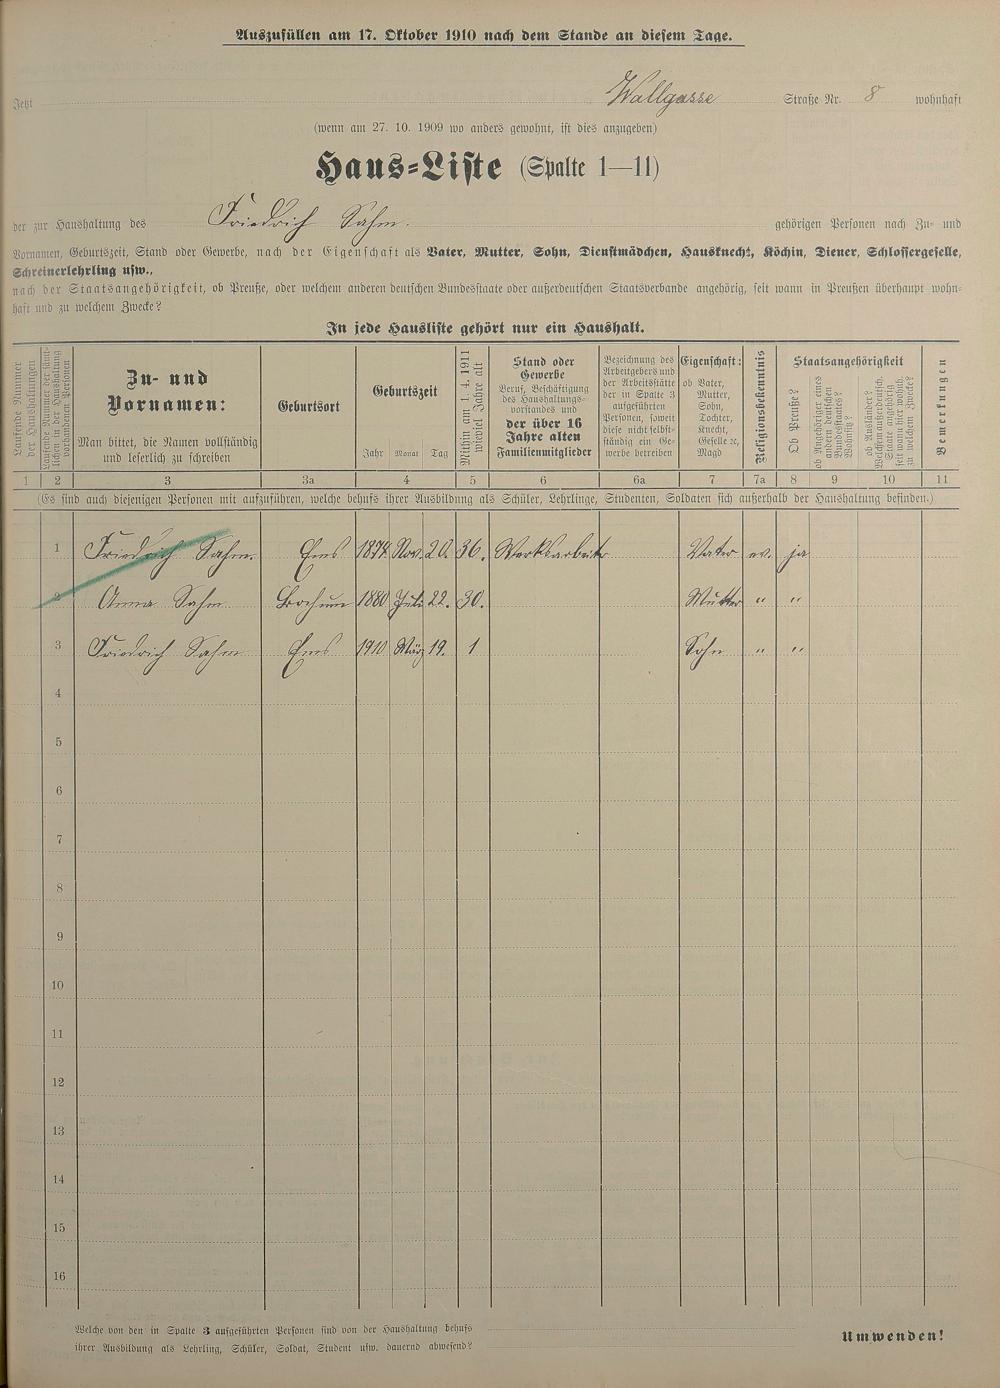 Auszufüllen am 17. Oktober 1910 nach dem Stande an diesem Tage.
Jetzt Wallgasse Straße Nr. 8 wohnhaft
(wenn am 27. 10. 1909 wo anders gewohnt, ist dies anzugeben)
Haus-Liste (Spalte 1—11)
der zur Haushaltung des Friedrich Sahm. gehörigen Personen nach Zu- und
Vornamen, Geburtszeit, Stand oder Gewerbe, nach der Eigenschaft als Vater, Mutter, Sohn, Dienstmädchen, Hausknecht, Köchin, Diener, Schlossergeselle,
Schreinerlehrling usw.,
nach der Staatsangehörigkeit, ob Preuße, oder welchem anderen deutschen Bundesstaate oder außerdeutschen Staatsverbande angehörig, seit wann in Preußen überhaupt wohn-
haft und zu welchem Zwecke?
In jede Hausliste gehört nur ein Haushalt.
Laufende Nummer
der Haushaltungen
Laufende Nummer der sämt-
lichen in der Haushaltung
vorhandenen Personen
Zu- und
Vornamen:
Man bittet, die Namen vollständig
und leserlich zu schreiben
Geburtsort
Geburtszeit
Jahr Monat Tag
Mithin am 1. 4. 1911
wieviel Jahre alt
Stand oder
Gewerbe
Beruf, Beschäftigung
des Haushaltungs-
vorstandes und
der über 16
Jahre alten
Familienmitglieder
Bezeichnung des
Arbeitgebers und
der Arbeitsstätte
der in Spalte 3
aufgeführten
Personen, soweit
diese nicht selbst-
ständig ein Ge-
werbe betreiben
Eigenschaft:
ob Vater,
Mutter,
Sohn,
Tochter,
Knecht,
Geselle ꝛc,
Magd
Religionsbekenntnis
Staatsangehörigkeit
Ob Preuße?
ob Angehöriger eines
andern deutschen
Bundesstaates?
Wohnsitz?
ob Ausländer?
Welchem außerdeutsch.
Staate angehörig
seit wann hier wohnh.
zu welchem Zwecke?
Bemerkungen
1 2 3 3a 4 5 6 6a 7 7a 8 9 10 11
(Es sind auch diejenigen Personen mit aufzuführen, welche behufs ihrer Ausbildung als Schüler, Lehrlinge, Studenten, Soldaten sich außerhalb der Haushaltung befinden.)
1 Friedrich Sahm. Ems 1874 Nov. 20. 36. Werksarbeiter Vater ev. ja
2 Anna Sahm Bochum 1880 Juli 22. 30. Mutter " "
3 Friedrich Sahm Ems 1910 März 19. 1 Sohn " "
4
5
6
7
8
9
10
11
12
13
14
15
16
Welche von den in Spalte 3 aufgeführten Personen sind von der Haushaltung behufs
ihrer Ausbildung als Lehrling, Schüler, Soldat, Student usw. dauernd abwesend?
Umwenden!